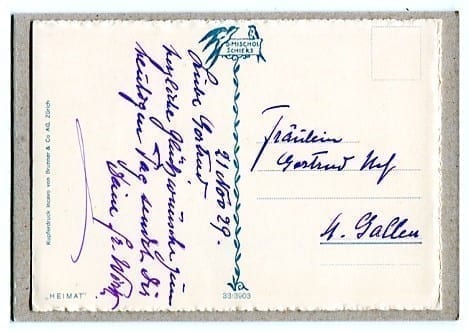 D. MISCHOL
SCHIERS
21 Nov 29.
Liebe Gertrud
herzliche Glückwünsche zum
heutigen Tag sendet Dir
Dein
Fräulein
Gertrud
St. Gallen
Kupferdruck Incavo von Brunner & Co AG, Zürich
„HEIMAT"
33/3903